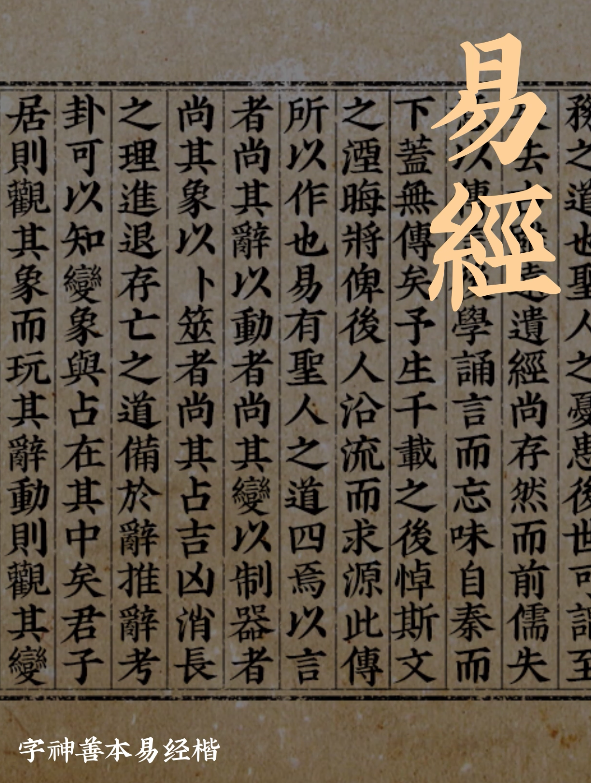 易經
務之道也聖人之憂患後世可謂至
去遺經尚存然而前儒失
以傳學誦言而忘味自秦而
下蓋無傳矣予生千載之後悼斯文
之湮晦將俾後人沿流而求源此傳
所以作也易有聖人之道四焉以言
者尚其辭以動者尚其變以制器者
尚其象以卜筮者尚其占吉凶消長
之理進退存亡之道備於辭推辭考
卦可以知變象與占在其中矣君子
居則觀其象而玩其辭動則觀其變
字神善本易经楷